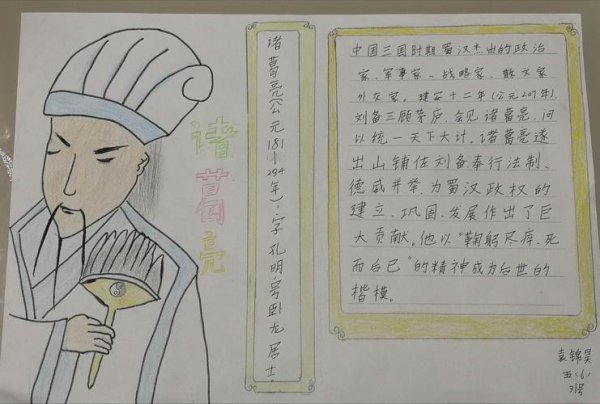 诸葛亮
诸葛亮(公元181-234年),字孔明,号卧龙居士.
中国三国时期蜀汉杰出的政治
家、军事家、战略家、散文家
外交家。建安十二年(公元207年),
刘备三顾茅庐,会见诸葛亮,问
以统一天下大计,诸葛亮遂
出山辅佐刘备奉行法制、
德威并举,为蜀汉政权的
建立、巩固、发展作出了巨
大贡献。他以“鞠躬尽瘁,死
而后已”的精神成为后世的
楷模。
袁锦昊
五.6.
31号